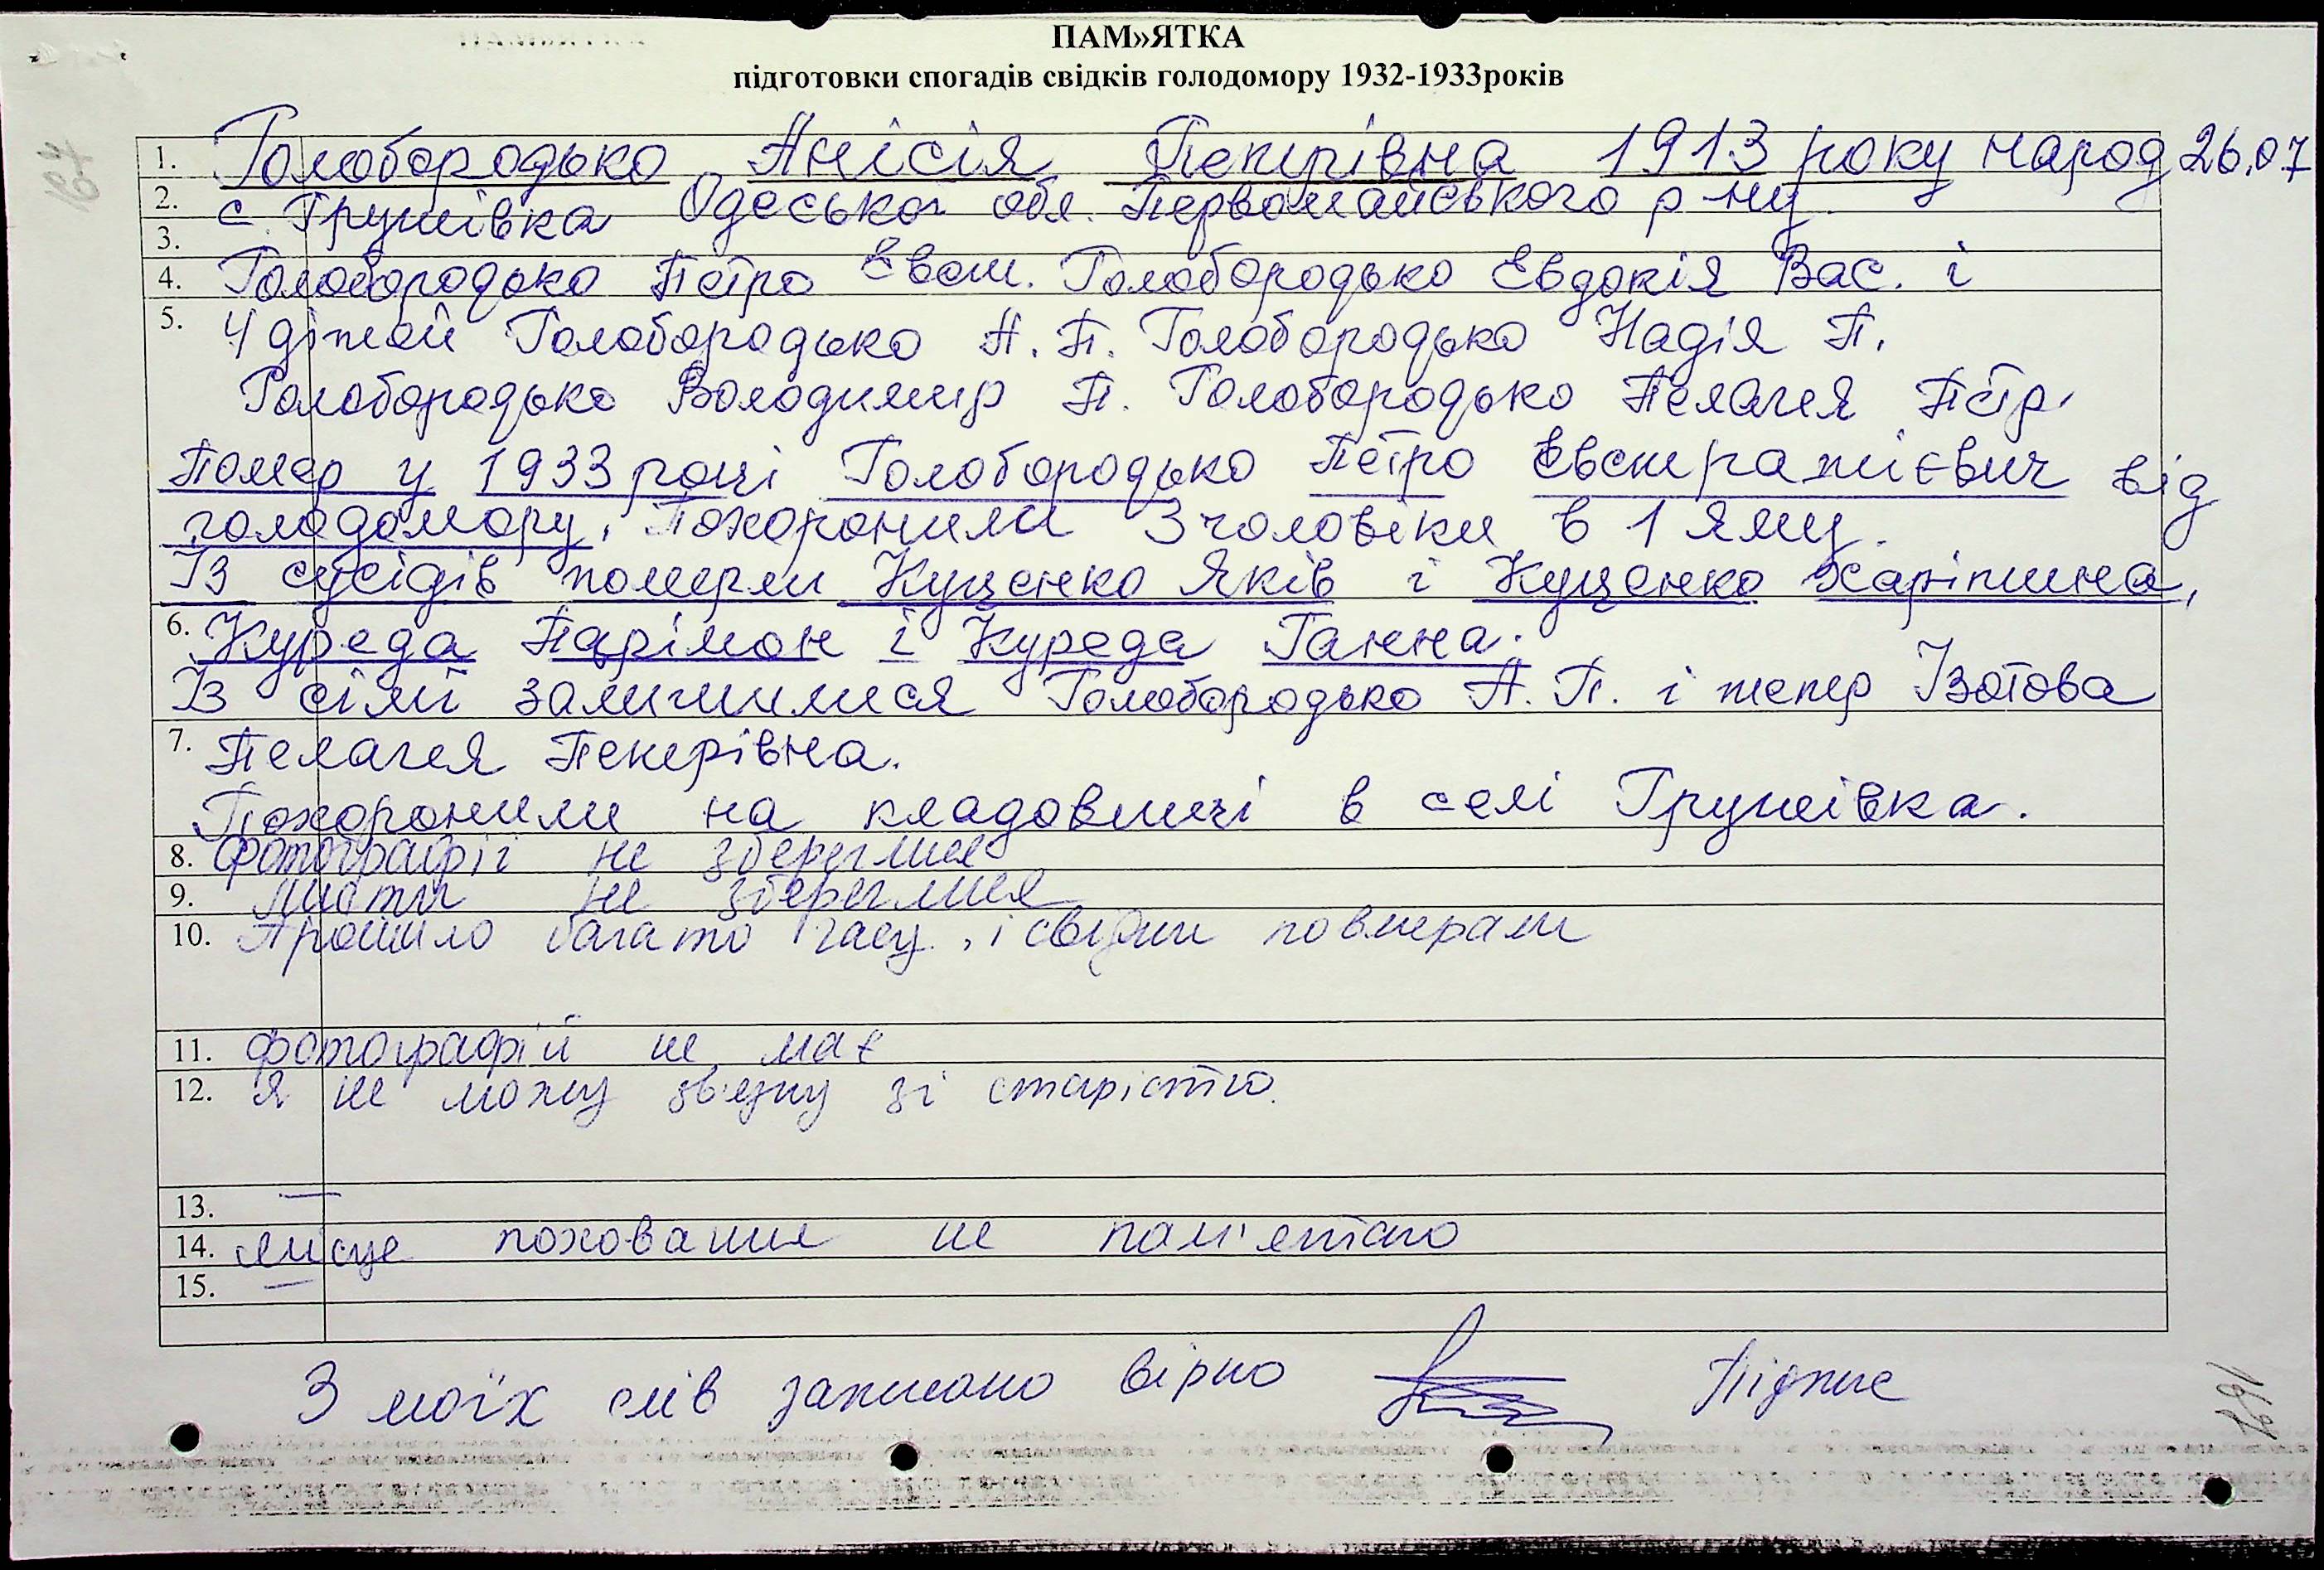 ПАМ»ЯТКА
підготовки спогадів свідків голодомору 1932-1933років
1. Голобородько Анісія Петрівна 1913 року народ 26.07
2. с. Грушівка Одеської обл. Первомайського р-ну
3.
4. Голобородько Петро Евст. Голобородько Евдокія Вас. і
5. 4 дітей Голобородько А. П. Голобородько Надія П.
Голобородько Володимир П. Голобородько Пелагея Петр.
Помер у 1933 році Голобородько Петро Евстратієвич від
голодомору. Похоронили 3 чоловіки в 1 яму.
Із сусідів померли Куценко Яків і Куценко Харітина,
6. Куреда Парімон і Куреда Ганна.
Із сімї залишилися Голобородько А. П. і тепер Ізотова
7. Пелагея Петрівна.
Похоронили на кладовищі в селі Грушівка.
8. фотографії не збереглися
9. листи не збереглися
10. Пройшло багато часу, і свідки повмерали
11. фотографій не має
12. Я не можу звязку зі старістю.
13. —
14. місце поховання не пам'ятаю
15. —
З моїх слів записано вірно Підпис
167